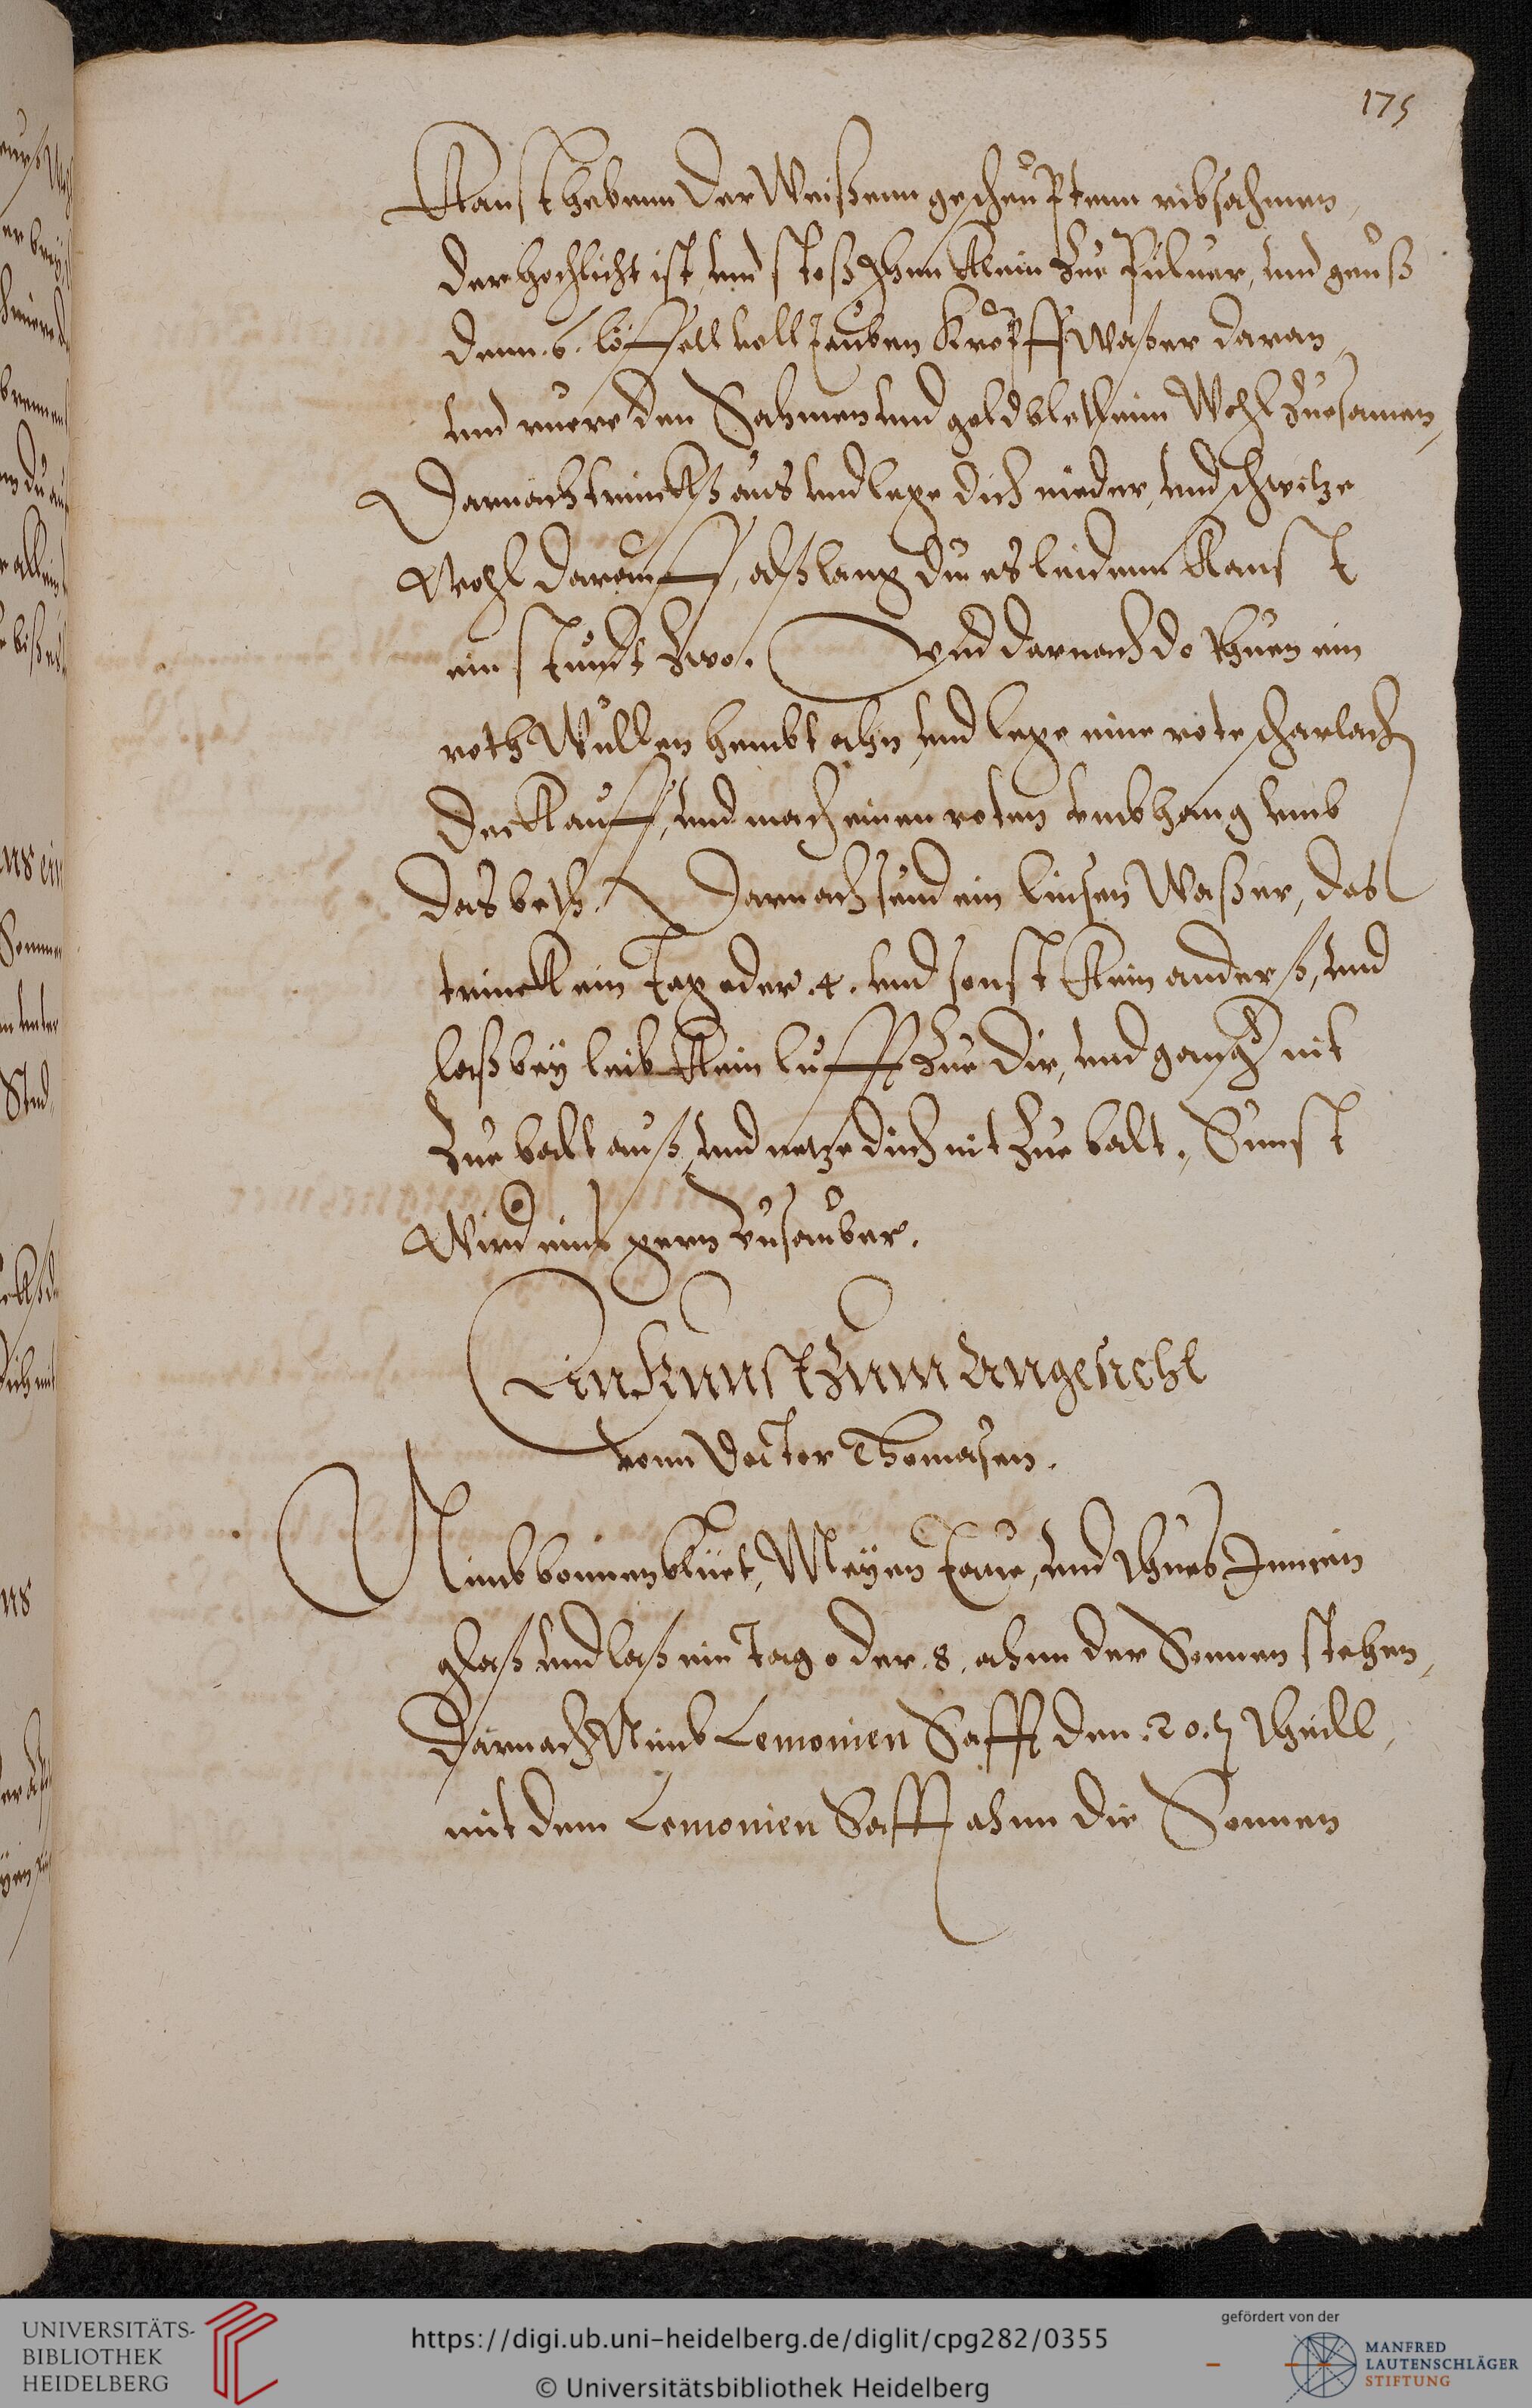 175
Kanst habenn der Weißenn gescheupftenn ribsahmen,
der hochlicht ist, vnd stoß Ihnn klein zue Puluer, vnd geuß
denn .6. löffell voll Tauben Kröpff Waßer daran,
vnd ruere den Sahmen vnd goldbletlein Wohl zuesamen,
Darnach trinckhß aus vnd lege dich nieder, vnd schwitze
Wohl darauff, alß lang du es leidenn kanst
ein stundt zwo. Vnd darnach do thuen ein
roth Wullen hembt ahn, vnd lege eine rote scharlach
deckh auff, vnd mach einen roten vmbhang vmb
das beth. Darnach seud ein linsen Waßer, das
trinckh ein Tag oder .4. vnd sonst kein anderß, vnd
laß bey leib kein lufft zue dir, vnd gang nit
zue balt auß, vnd netze dich nit zue balt, Sunst
Wird eins gern vnsauber.
Ein Kunst zum Angesicht
vonn Docter Thomasen.
Nimb bonnenblüet, Meyen Taue, vnd thues Inn ein
glaß vnd laß ein Tag oder .8. ahnn der Sonnen stehen,
Darnach Nimb Lemonien Safft den .20. theill,
mit dem Lemonien Safft ahnn die Sonnen
UNIVERSITÄTS-
BIBLIOTHEK
HEIDELBERG
https://digi.ub.uni-heidelberg.de/diglit/cpg282/0355
© Universitätsbibliothek Heidelberg
gefördert von der
MANFRED
LAUTENSCHLÄGER
STIFTUNG